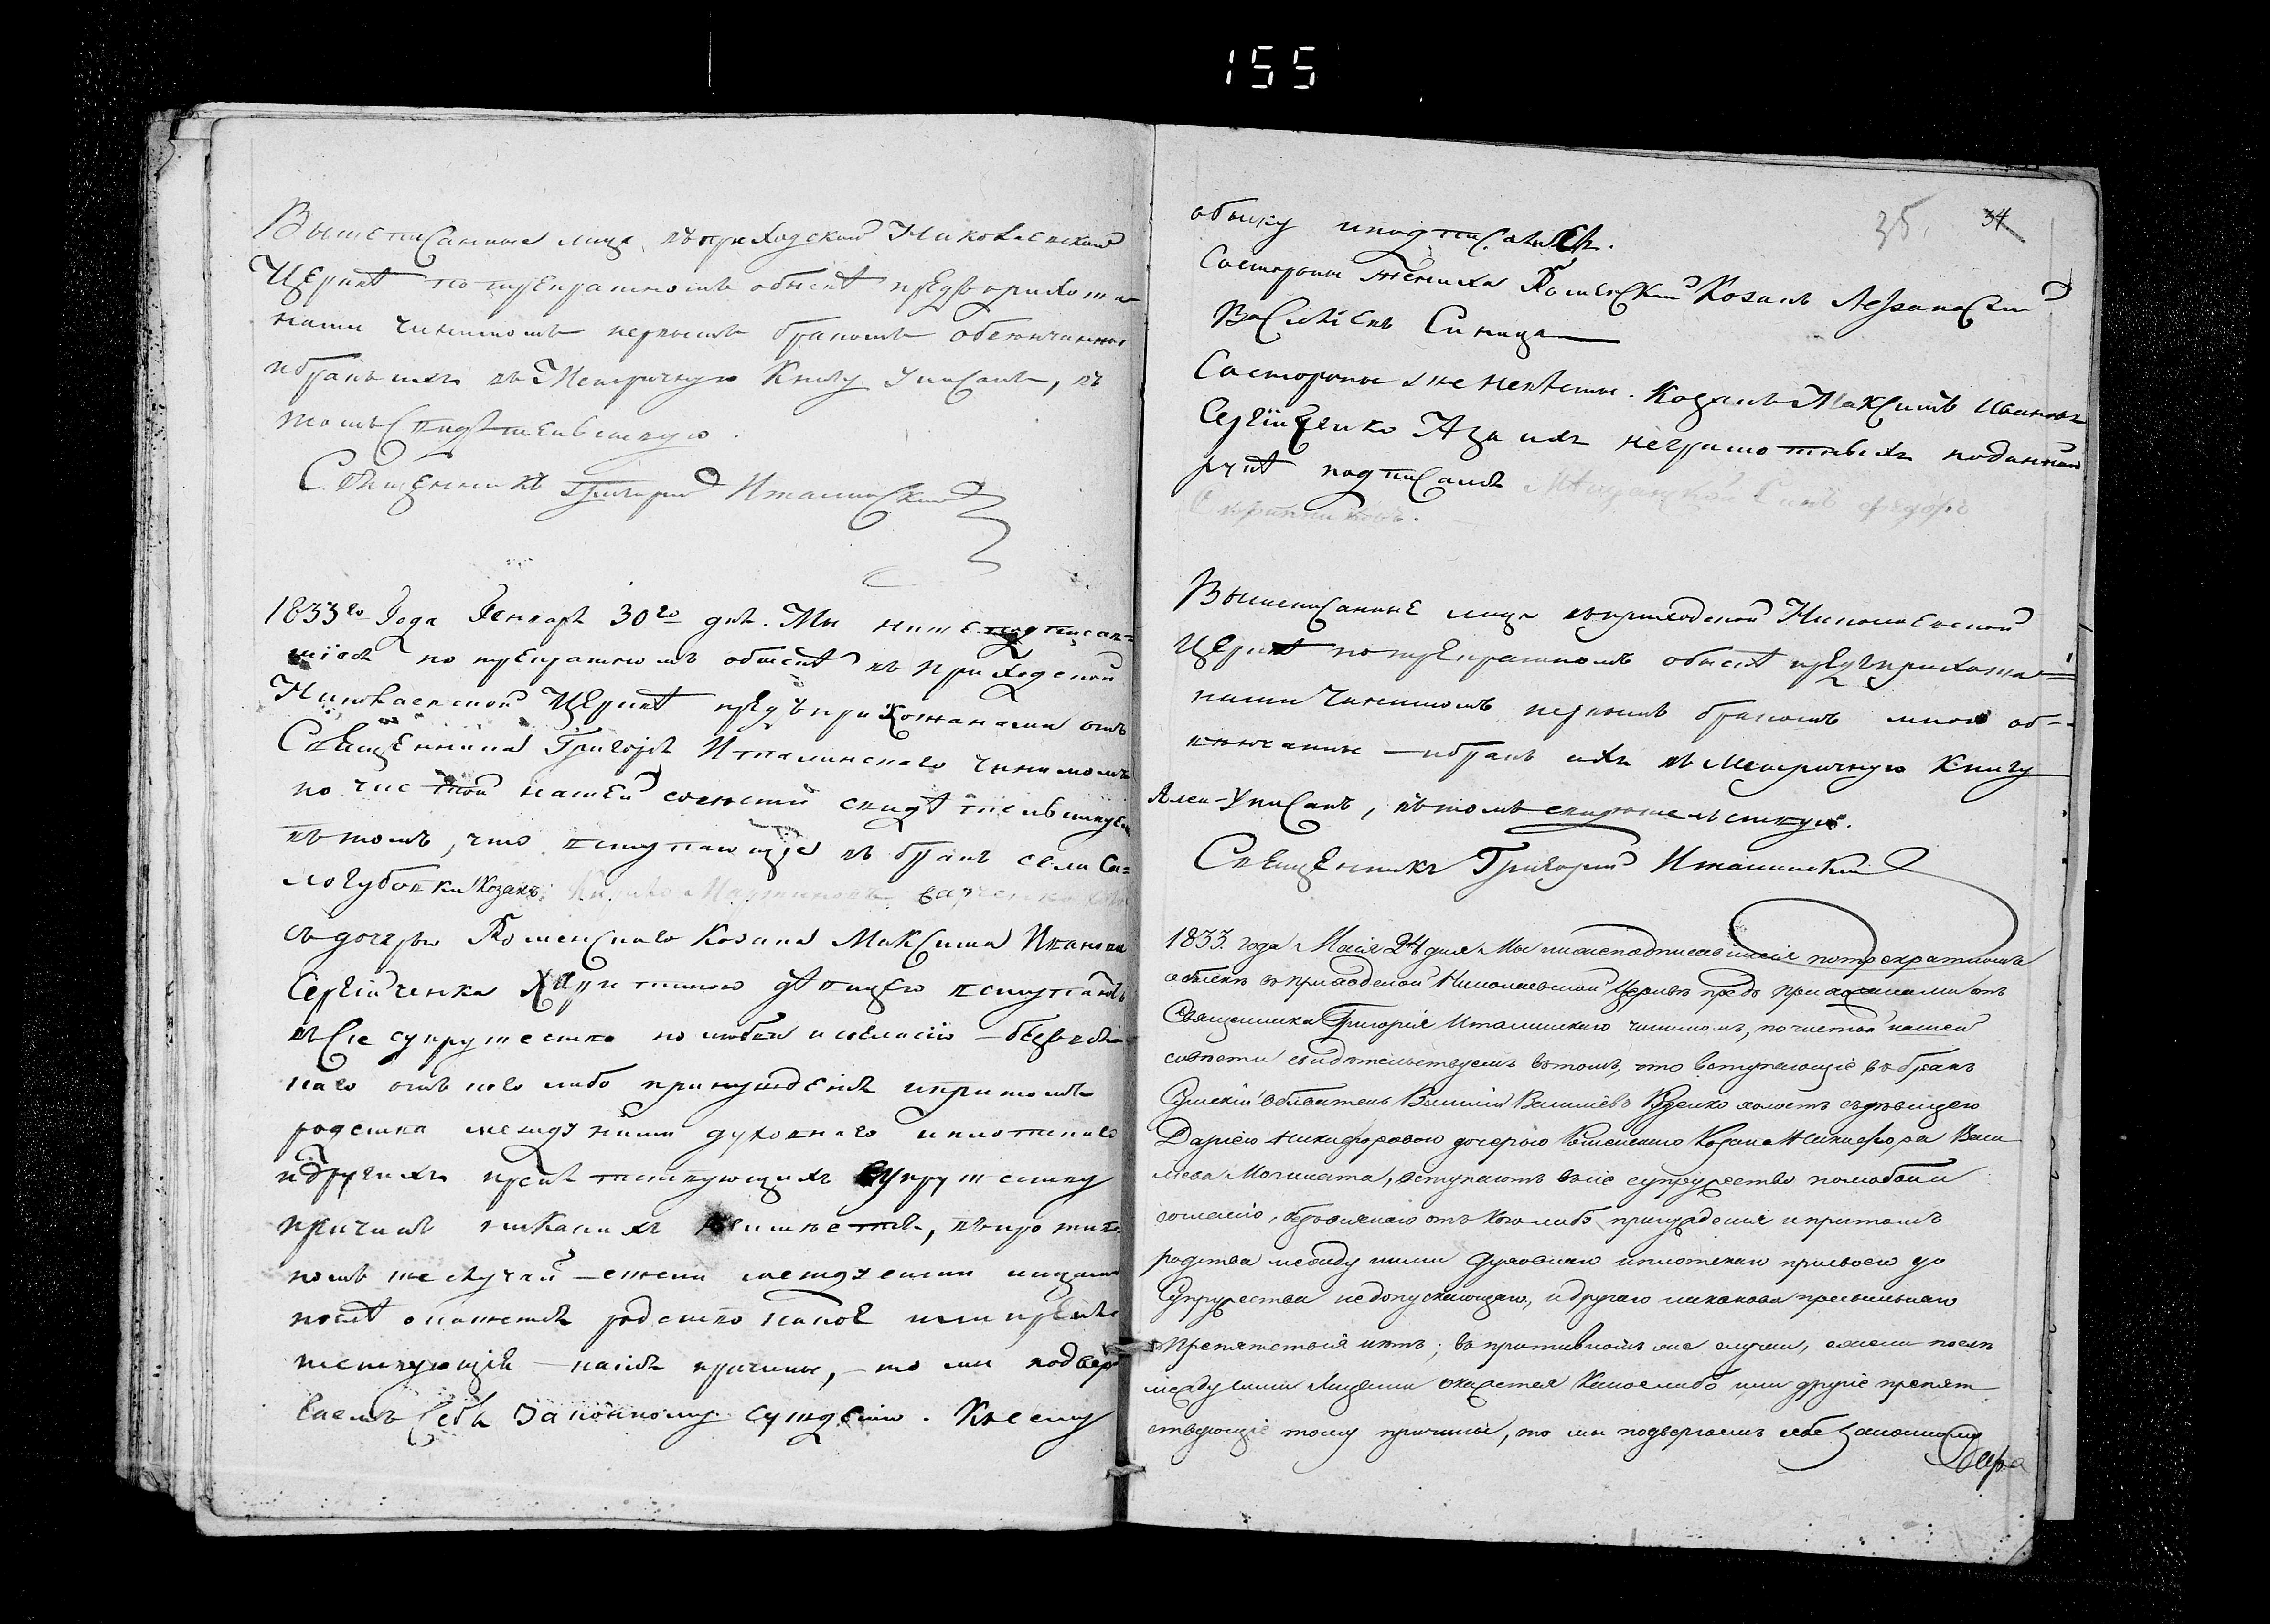 155
Вышеписанные лица въ приходской Николаевской
Церквѣ по трекратномъ обыскѣ предъ прихожа
нами чиномъ первымъ бракомъ обвѣнчанны
и бракъ ихъ въ Метричную Книгу уписанъ, въ
томъ свидѣтельствую.
Священникъ Григорій Италинскій
1833го Года Генваря 30го дня. Мы нижеподписав=
шіеся по трекратномъ обыскѣ въ приходской
Николаевской Церквѣ предъ прихожанами отъ
Священника Григорія Италинскаго чинимомъ
по чистой нашей совѣсти свидѣтельствуемъ
въ томъ, что вступающіе въ бракъ села Са=
логубовки Козакъ Мартиновъ
съ дочерью Роменскаго Козака Максима Иванова
Сергійченка Харитиною дѣвицею вступаютъ
въ сіе супружество по любви и согласію безъ всяка
наго отъ кого либо принужденія и притомъ
родства между ними духовнаго и плотскаго
и другихъ препятствующихъ супружеству
причинъ никакихъ неимѣется, въ против
номъ же случаѣ ежели между сими лицами
послѣ окажется родство какое или препят
ствующія какія причины, то мы подвер
гаемъ себя Законному сужденію. Къ сему
35. 34
обыску и подписались.
Состороны жениха Роменскій Козакъ Афанасій
Василіевъ Синица
Состороны же невѣсты. Козакъ Максимъ Ивановъ
Сергійченко А за ихъ неграмотныхъ по данной
рукѣ подписался Мѣщанской Сынъ Федоръ
Скрынниковъ.
Вышеписанные лица въ приходской Николаевской
Церквѣ по трекратномъ обыскѣ предъ прихожа=
нами чинимомъ первымъ бракомъ мною об=
вѣнчанны и бракъ ихъ въ Метричную Книгу
Уписанъ, въ томъ свидѣтельствую.
Священникъ Григорій Италинскій
1833. года Маія 24 дня Мы нижеподписавшіеся по трекратномъ
обыскѣ въ приходской Николаевской Церквѣ предъ прихожанами отъ
Священника Григорія Италинскаго чинимомъ, по чистой нашей
совѣсти свидѣтельствуемъ въ томъ, что вступающіе въ бракъ
Сумскій обыватель Василій Василіевъ холостъ съ дѣвицею
Даріею Никифоровою дочерью Роменскаго Козака Никифора Васи
лѣева Могилата, вступаютъ въ сіе супружество по любви и
согласію, безъ всякаго отъ кого либо принужденія и притомъ
родства между ними духовнаго и плотскаго до
Супружества недопускающаго, и другаго никакова
препятствія нѣтъ; въ противномъ же случаи, ежели послѣ
между сими лицами окажется какое либо или другіе препят
ствующіе тому причины, то мы подвергаемъ себе законному